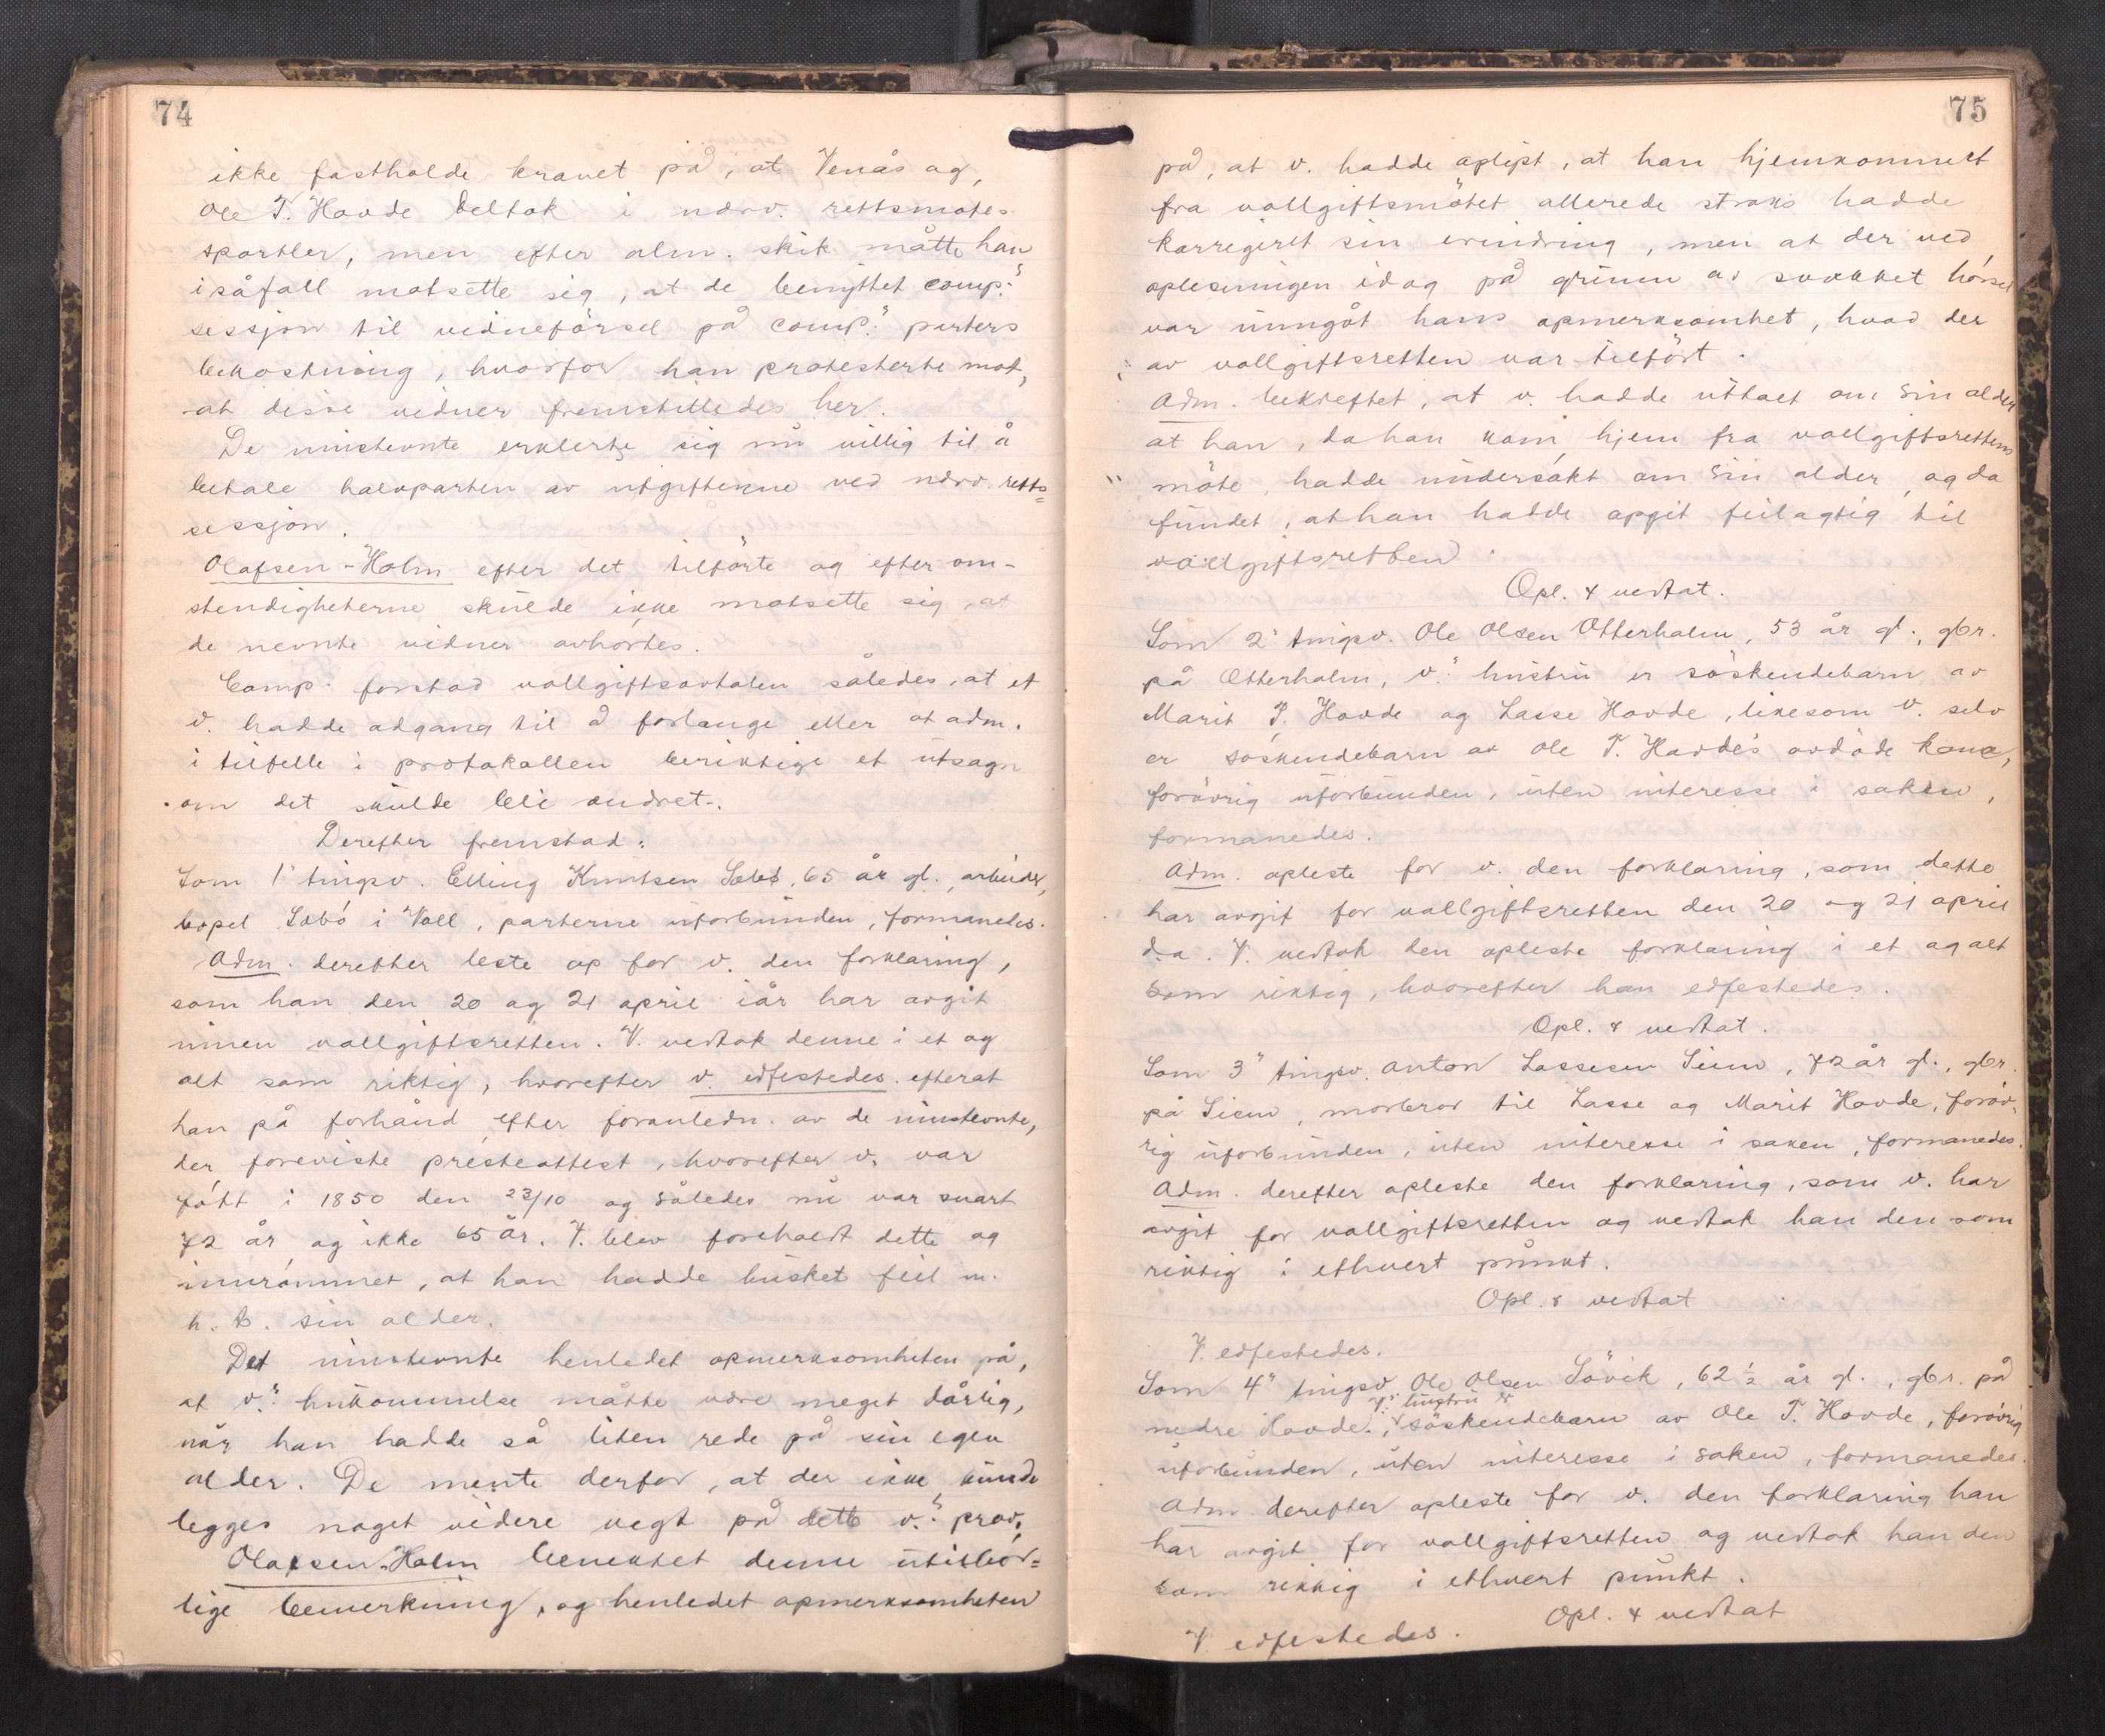 74
ikke fastholde kravet på, at Venås og,
Ole T. Hovde deltok i nærv. rettsmøtes
sportler, men efter alm. skik måtte han
isåfall motsette sig, at de benyttet comp:s
sessjon til vidneførsel på comp:s parters
bekostning, hvorfor han protesterte mot,
at disse vidner fremstilledes her.
De innstevnte erklerte sig nu villig til å
betale halvparten av utgifterne ved nærv. retts=
sessjon.
Olafsen-Holm efter det tilførte og efter om-
stendigheterne skulde ikke motsette sig, at
de nevnte vidner avhørtes.
Comp. forstod vollgiftsavtalen således, at et
v. hadde adgang til å forlange eller at adm.
i tilfelle i protokollen beriktige et utsagn
om det skulde bli endret.
Derefter fremstod:
Som 1' tingsv. Elling Knutsen Sæbø, 65 år gl., arbeider,
bopel Sæbø i Voll, parterne uforbunden, formanedes.
Adm. derefter leste op for v. den forklaring,
som han den 20 og 21 april iår har avgit
innen vollgiftsretten. V. vedtok denne i et og
alt som riktig, hvorefter v. edfestedes efterat
han på forhånd efter foranledn. av de innstevnte,
der foreviste presteattest, hvorefter v. var
født i 1850 den 23/10 og således nu var snart
72 år og ikke 65 år. V. blev foreholdt dette og
innrømmet, at han hadde husket feil m.
h. t. sin alder.
Det innstevnte henledet opmerksomheten på,
at v.s hukommelse måtte være meget dårlig,
når han hadde så liten rede på sin egen
alder. De mente derfor, at der ikke kunde
legges noget videre vegt på dette v.s prov.
Olafsen-Holm benektet denne utilbør=
lige bemerkning, og henledet opmerksomheten
75
på, at v. hadde oplyst, at han hjemkommet
fra vollgiftsmøtet allerede straks hadde
korrigeret sin erindring, men at der ved
oplesningen idag på grunn av svekket hørsel
var unngåt hans opmerksomhet, hvad der
av vollgiftsretten var tilført.
Adm. bekreftet, at v. hadde uttalt om sin alder
at han, da han kom hjem fra vollgiftsrettens
møte, hadde undersøkt om sin alder, og da
fundet, at han hadde opgit feilagtig til
vollgiftsretten.
Opl. & vedtat.
Som 2' tingsv. Ole Olsen Otterholm, 53 år gl., gbr.
på Otterholm, v.s hustru er søskendebarn av
Marit P. Hovde og Lasse Hovde, likesom v. selv
er søskendebarn av Ole T. Hovde's avdøde kone,
forøvrig uforbunden, uten interesse i saken,
formanedes.
Adm. opleste for v. den forklaring, som dette
har avgit for vollgiftsretten den 20 og 21 april
d.a. V. vedtok den opleste forklaring i et og alt
som riktig, hvorefter han edfestedes.
Opl. & vedtat.
Som 3" tingsv. Anton Lassesen Siem, 72 år gl., gbr.
på Siem, morbror til Lasse og Marit Hovde, forøv-
rig uforbunden, uten interesse i saken, formanedes.
Adm. derefter opleste den forklaring, som v. har
avgit for vollgiftsretten og vedtok han den som
riktig i ethvert punkt.
Opl. & vedtat
V. edfestedes.
Som 4" tingsv. Ole Olsen Søvik, 62 ½ år gl., gbr. på
v.s hustru er
nedre Hovde, søskendebarn av Ole T. Hovde, forøvrig
uforbunden, uten interesse i saken, formanedes.
Adm. derefter opleste for v. den forklaring han
har avgit for vollgiftsretten og vedtok han den
som riktig i ethvert punkt.
Opl. & vedtat
V. edfestedes.